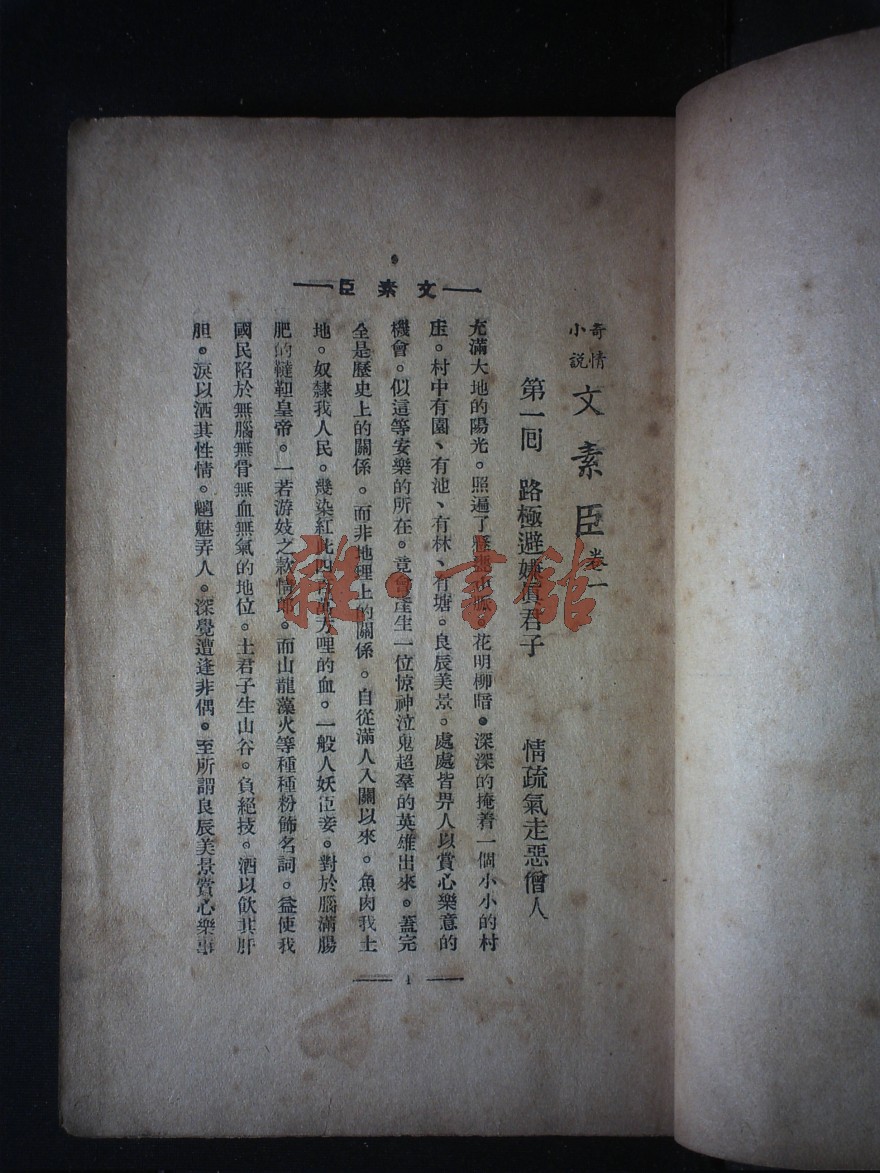 文素臣
奇情小說 文素臣 卷一
第一回 路極避嫌真君子 情疏氣走惡僧人
充滿大地的陽光。照遍了 花明柳暗。深深的掩着一個小小的村
庄。村中有園、有池、有林、有塘。良辰美景。處處皆畀人以賞心樂意的
機會。似這等安樂的所在。竟會產生一位惊神泣鬼超羣的英雄出來。蓋完
全是歷史上的關係。而非地理上的關係。自從滿人入關以來。魚肉我土
地。奴隸我人民。幾染紅此四百萬方哩的血。一般人妖臣妾。對於腦滿腸
肥的韃靼皇帝。一若游妓之款情郎。而山龍藻火等種種粉飾名詞。益使我
國民陷於無腦無骨無血無氣的地位。士君子生山谷。負絕技。酒以飲其肝
胆。淚以洒其性情。魑魅弄人。深覺遭逢非偶。至所謂良辰美景賞心樂事
1
雜·書舘